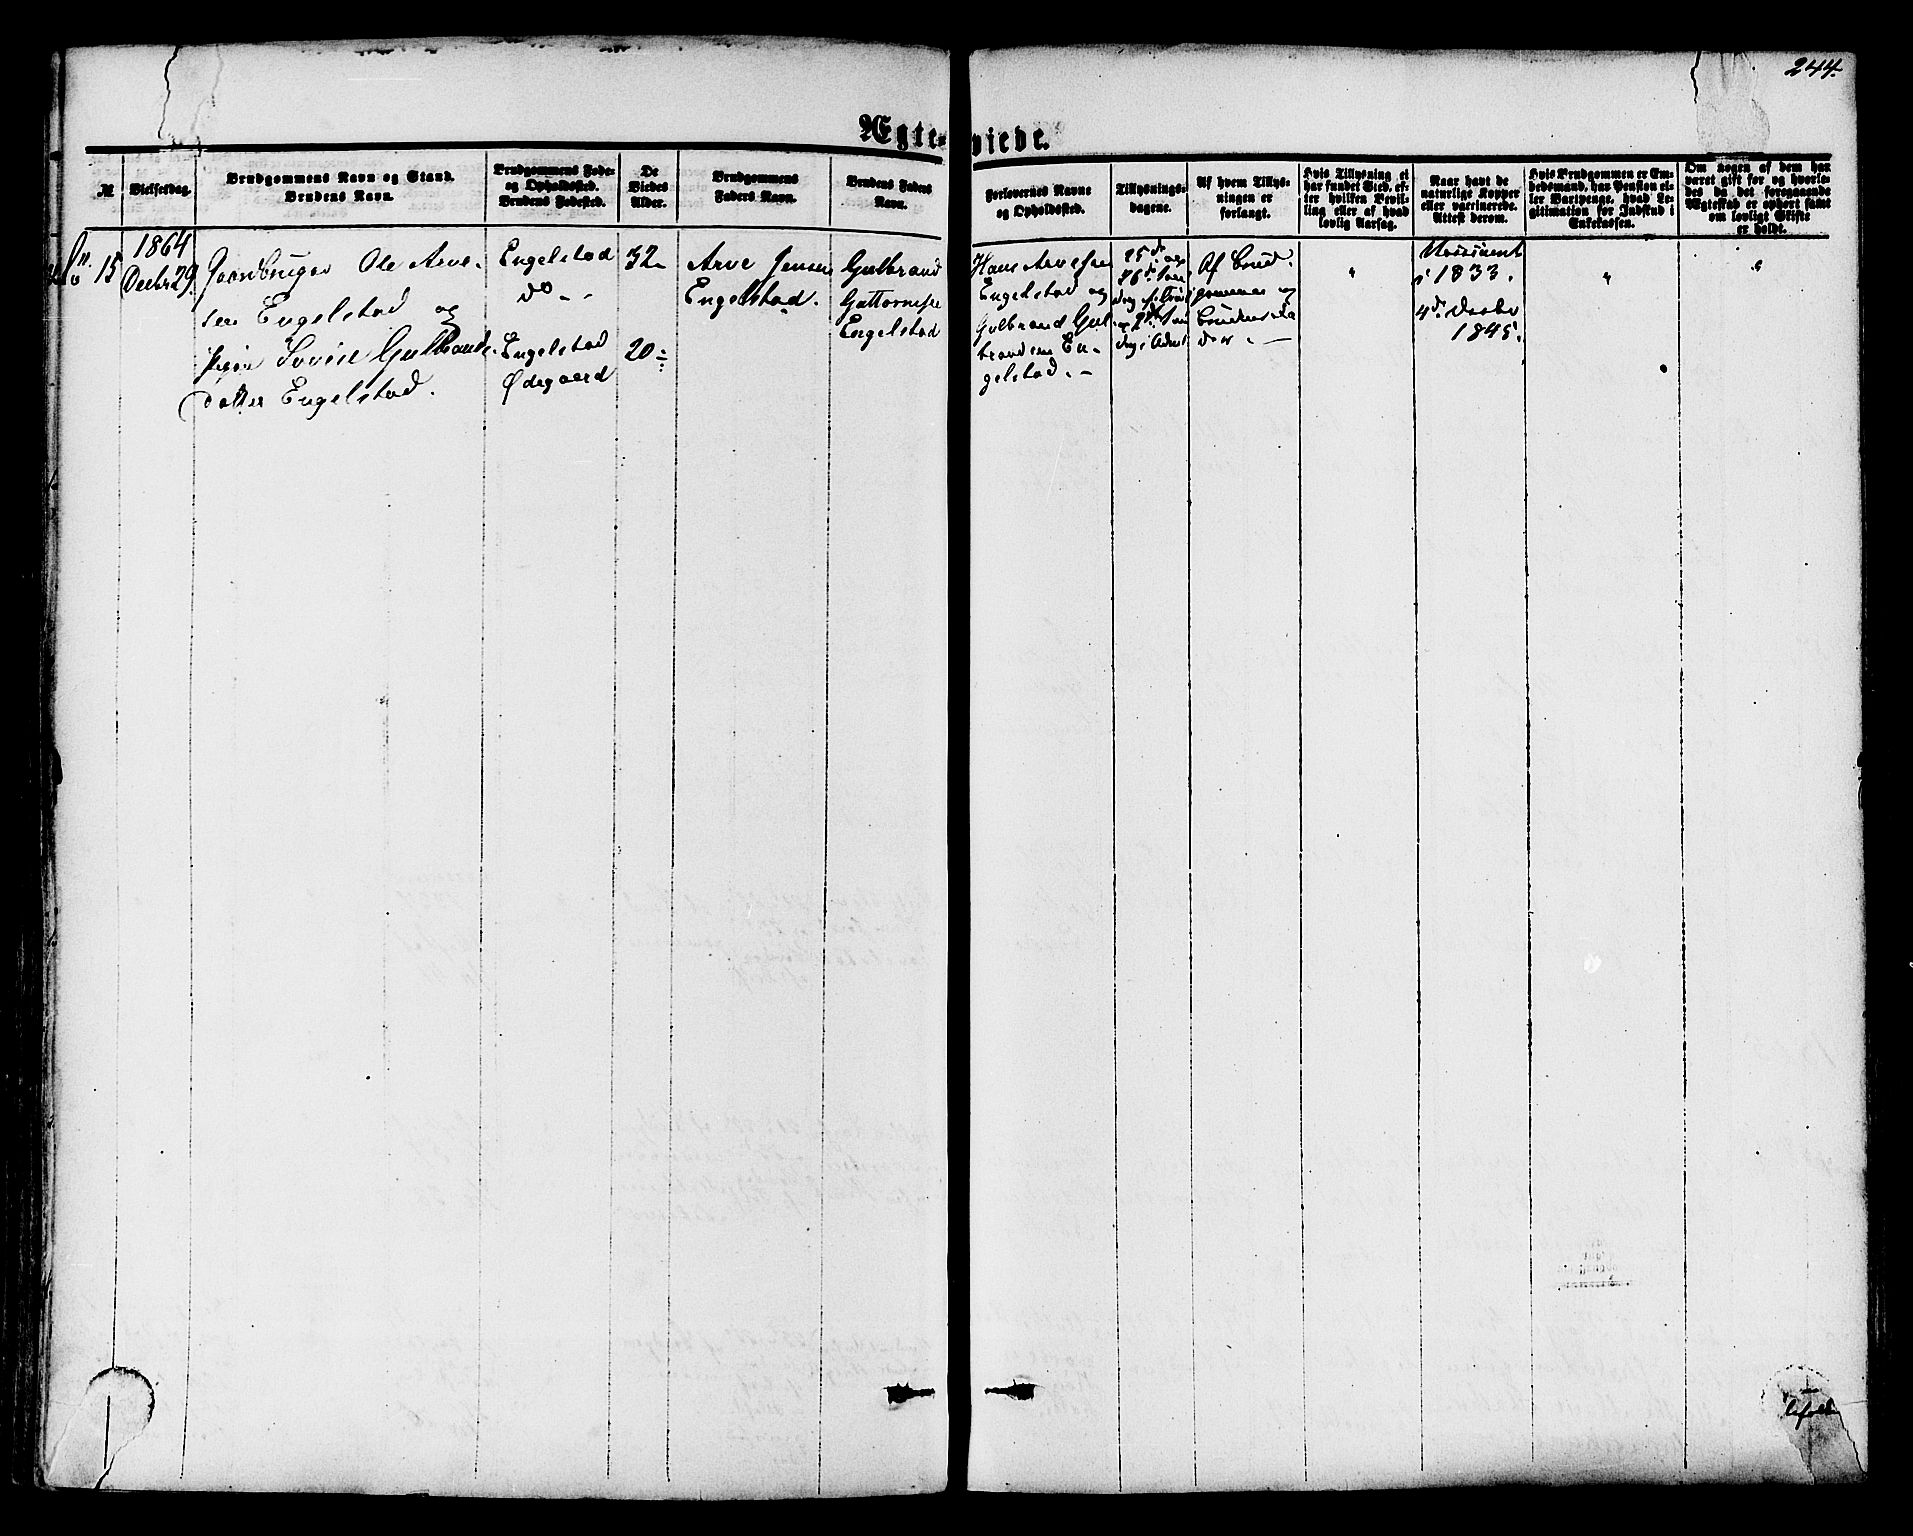 244.
Ægteviede.
№
Vielsesdag.
Brudgommens Navn og Stand.
Brudens Navn.
Brudgommens Føde-
og Opholdssted.
Brudens Fødested.
De
Viedes
Alder.
Brudgommens
Faders Navn.
Brudens Faders
Navn.
Forlovernes Navne
og Opholdssted.
Tillysnings-
dagene.
Af hvem Tillys-
ningen er
forlangt.
Hvis Tillysning ei
har fundet Sted, ef-
ter hvilken Bevil-
ling eller af hvad
lovlig Aarsag.
Naar havt de
naturlige Kopper
eller vaccinerede.
Attest derom.
Hvis Brudgommen er Em-
bedsmand, har Pension el-
ler Vartpenge, hvad Le-
gitimation for Indskud i
Enkekassen.
Om nogen af dem har
været gift før og hvorle-
des da det foregaaende
Ægteskab er ophørt samt
om lovligt Skifte
er holdt.
15
1864
Decbr 29
Gaardbruger Ole Arve-
sen Engelstad og
Pigen Lovise Gulbrands-
datter Engelstad.
Engelstad
do - -
Engelstad
Ødegaard
32
20
Arve Jensen
Engelstad.
Gulbrand
Guttormsen
Engelstad
Hans Arvesen
Engelstad og
Gulbrand Gul
brandsen En-
gelstad. -
25d og
26d Søn
dag f. Trin
og 2den Søn
dag i Advent
Af Brud-
gommen og
Brudens Fa
der. -
"
Vaccineret
i 1833.
4d Decbr
1845.
"
"